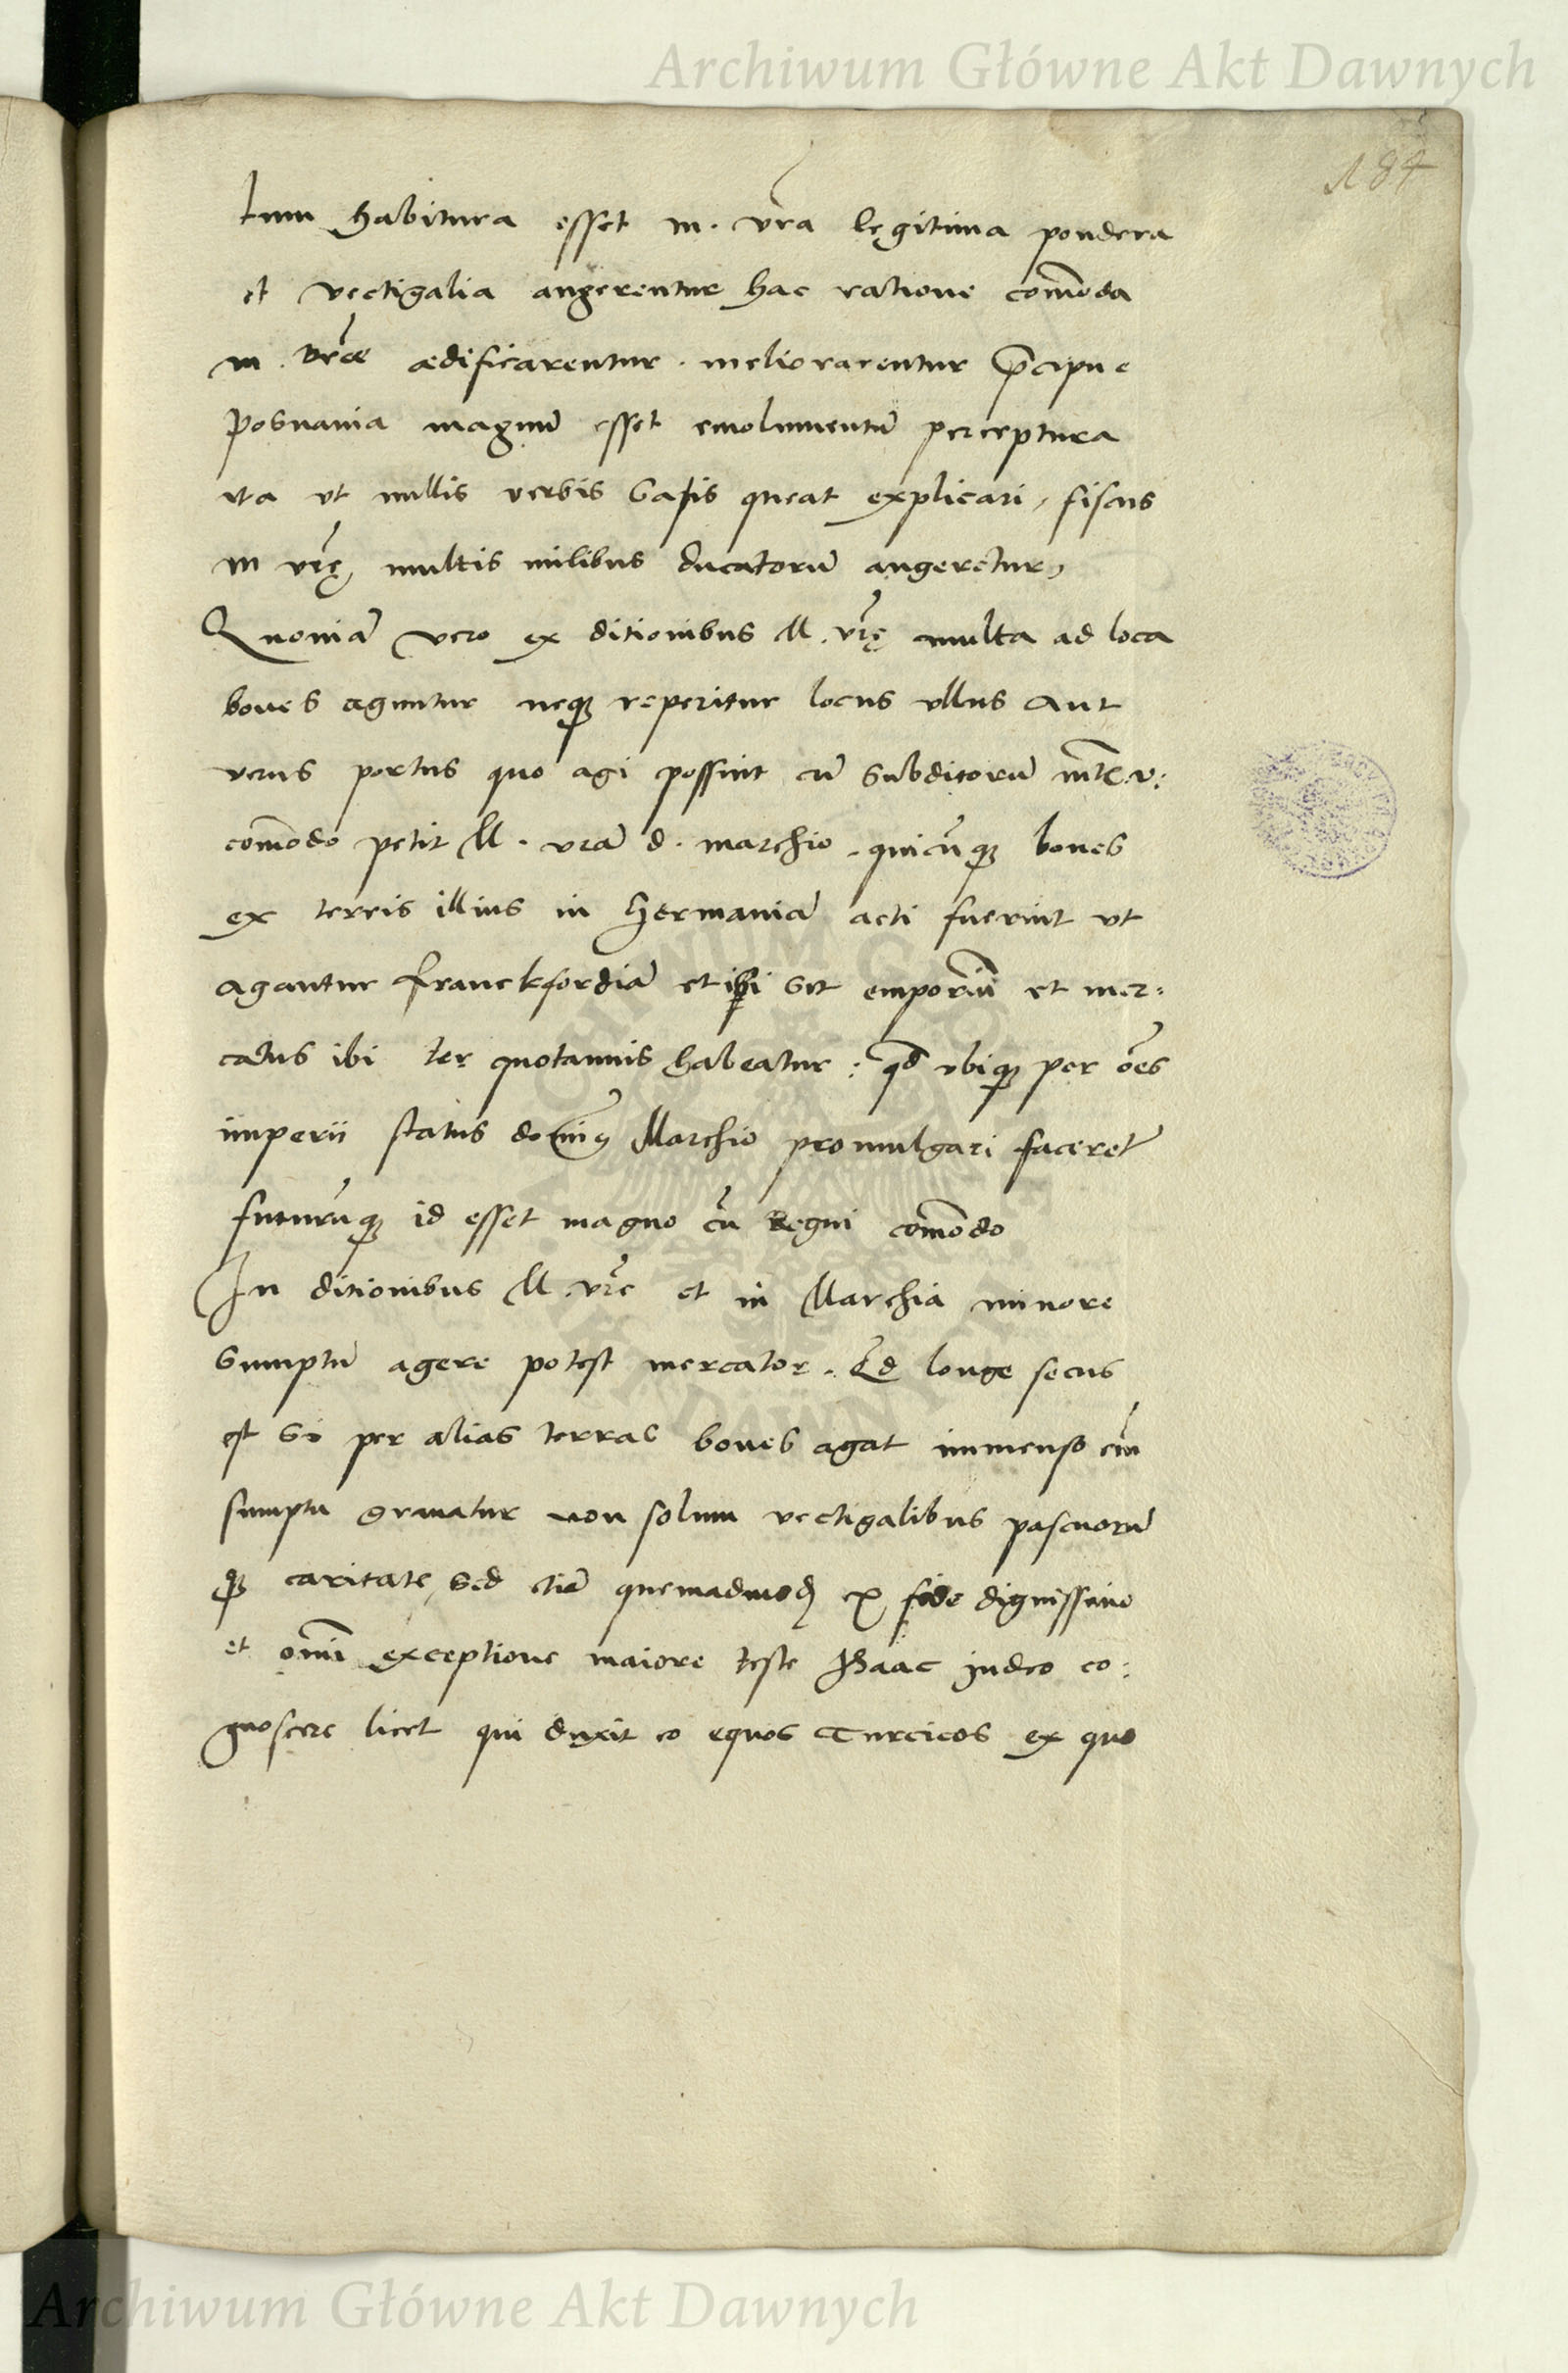 Archiwum Główne Akt Dawnych
184
tum habitura esset m. vr̃a lęgitima pondera
et vectigalia augerentur hac ratione com̃oda
m. vr̃æ ædificarentur. meliorarentur p̃cipue
posnania magnũ esset emolumentũ perceptura
ita vt nullis verbis satis queat explicari, fiscus
m vr̃ę, multis milibus ducatorũ augeretur,
Quoniã vero ex ditionibus M. vr̃ę multa ad loca
boues aguntur neqȝ reperitur locus vllus aut
verus portus quo agi possint cũ subditorũ mt̃e. v:
com̃odo petit M. vrã d. marchio. quicũqȝ boues
ex terris illius in Germaniã acti fuerint vt
agantur franckfordiã et ibi sit emporiũ et mer:
catus ibi ter quotannis habeatur: qd̃ vbiqȝ per ões
imperii status domin9 Marchio promulgari faceret
futurũqȝ id esset magno cũ Regni com̃odo
In ditionibus M. vr̃e et in Marchia minore
sumptu agere potest mercator. Qd̃ longe secus
est si per alias terras boues agat immenso em̃
sumptu grauatur non solum vectigalibus pascuorũ
qȝ caritate, sed etiã quemadmodȝ ex fide dignissimo
et om̃i exceptione maiore teste Isaac judeo co:
gnoscere licet qui duxit eo equos Turcicos ex quo
Archiwum Główne Akt Dawnych